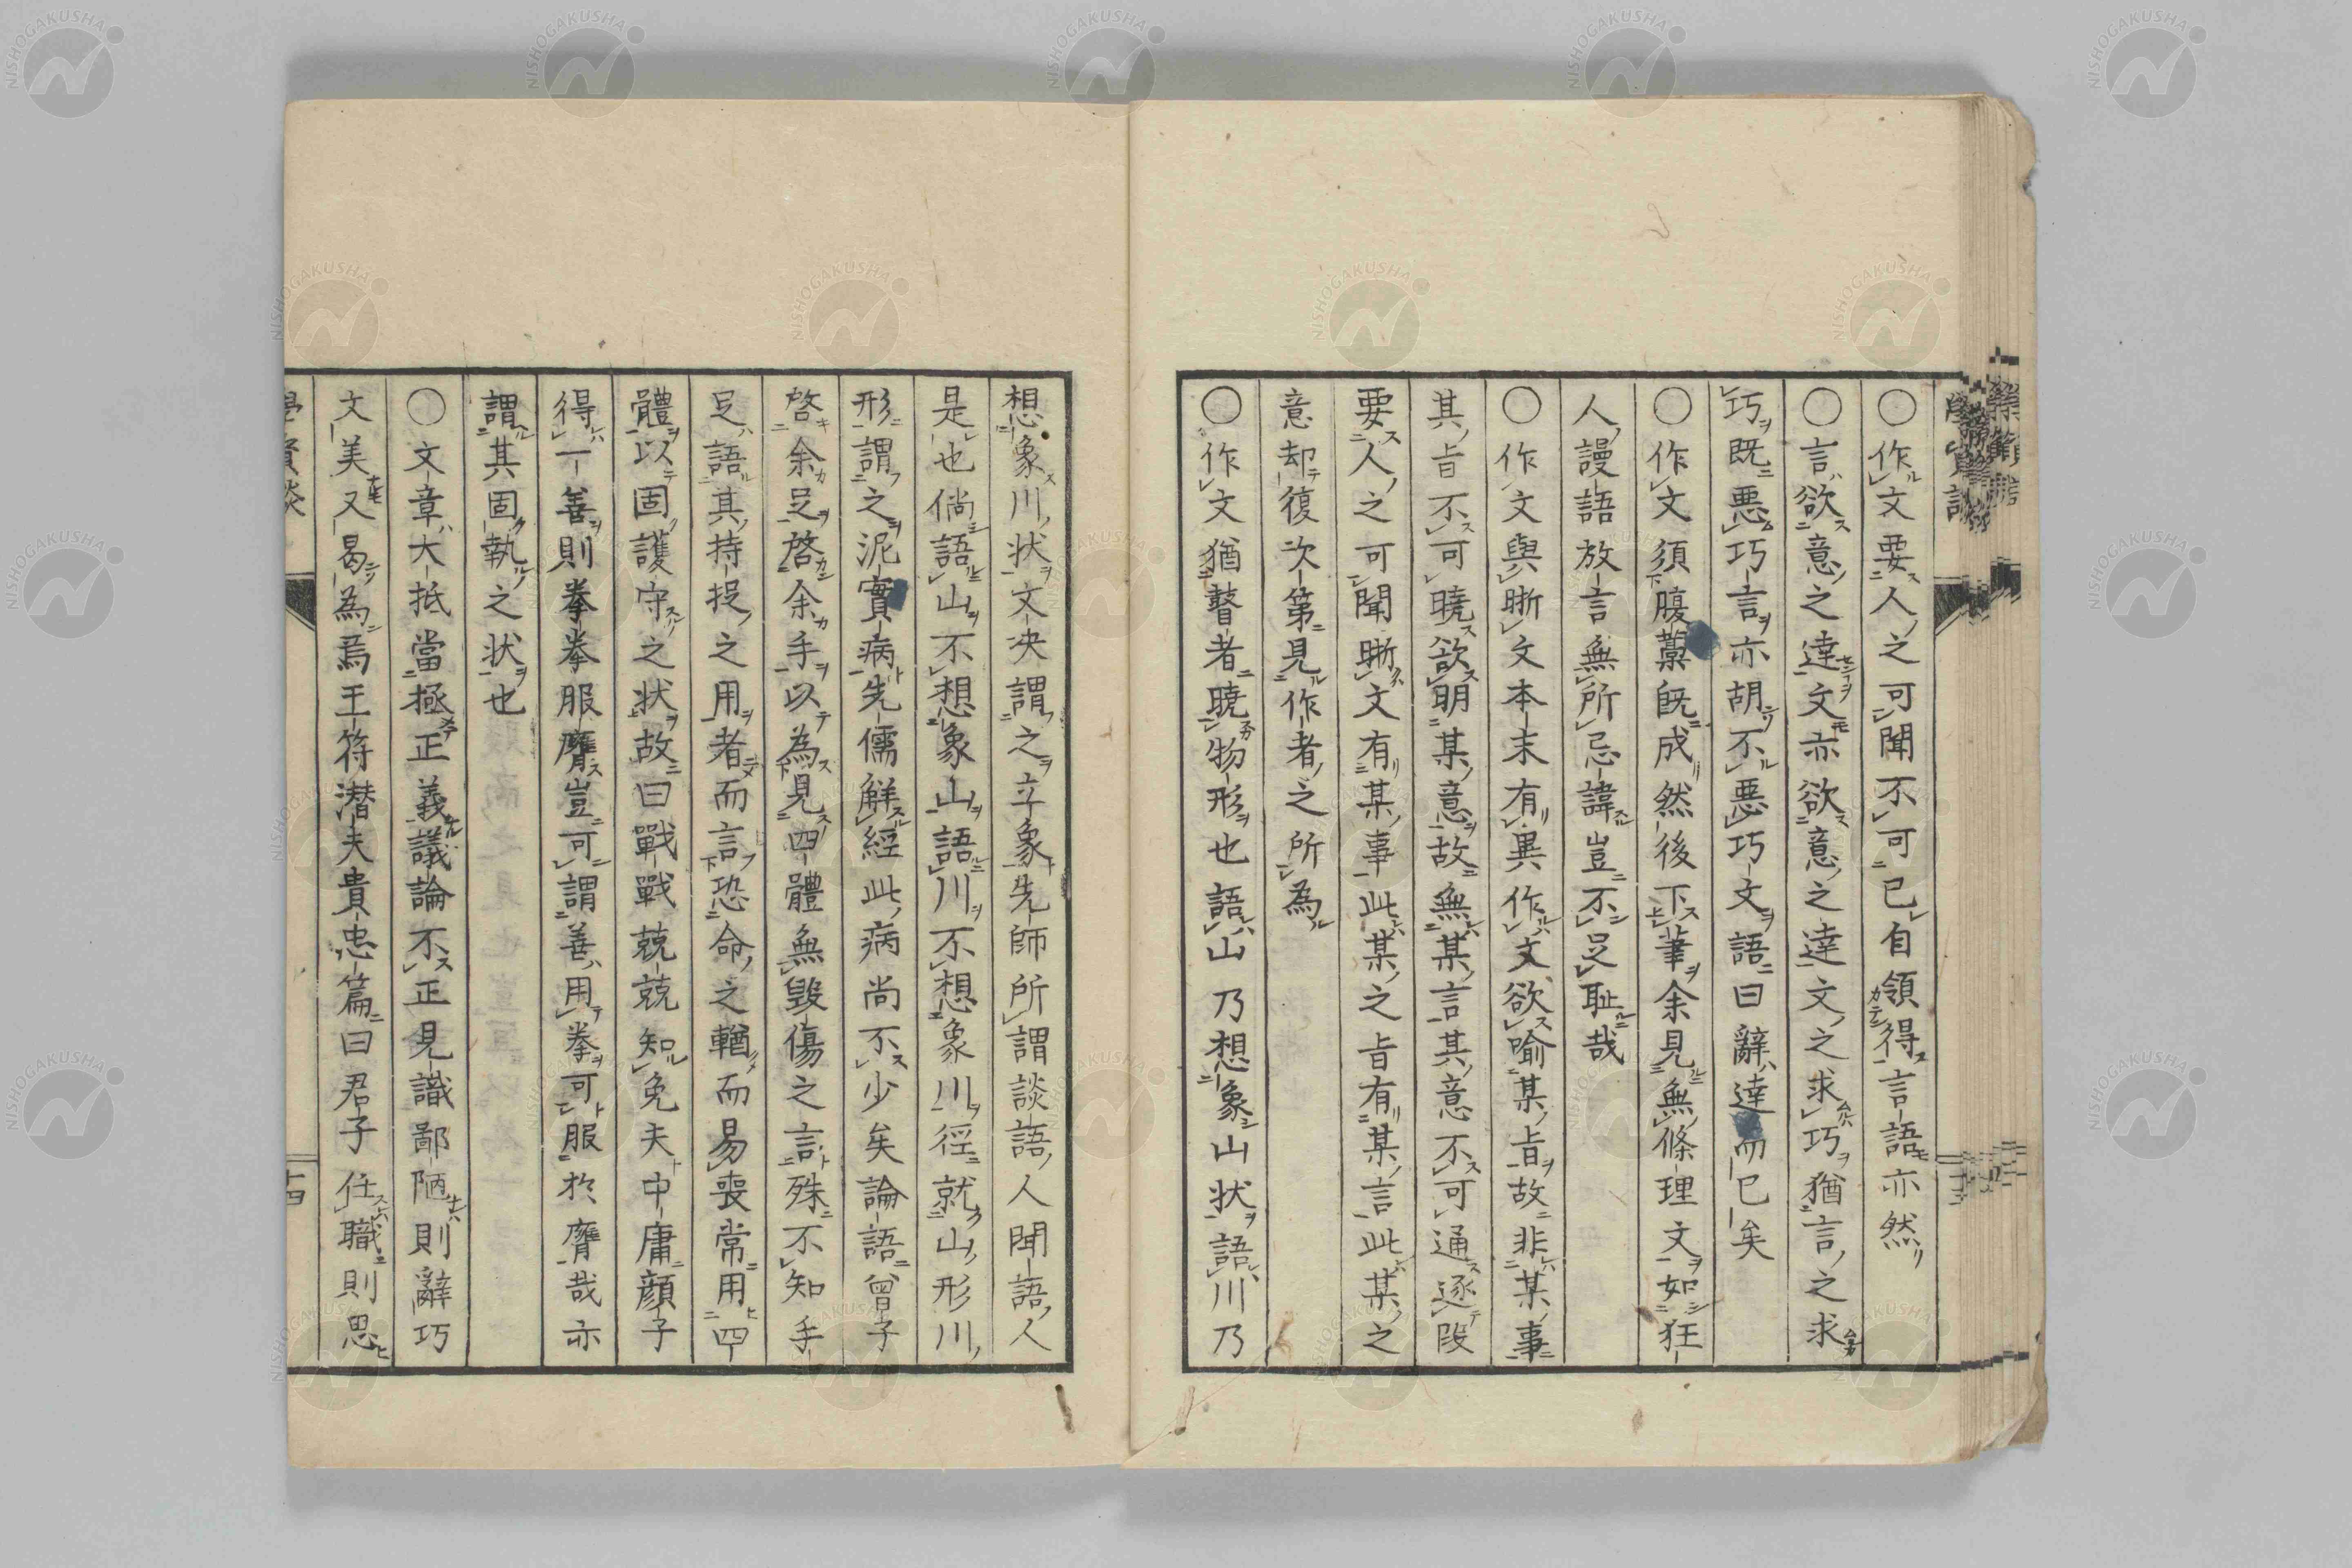 〇作文要人之可聞不可已自領得言語亦然
〇言欲意之達文亦欲意之達文之求巧猶言之求
巧既悪巧言亦胡不悪巧文語曰辭達而已矣
〇作文須腹藁既成然後下筆余見無條理文如狂
人謾語放言無所忌諱豈不足耻哉
〇作文與晣文本末有異作文欲喻某旨故非某事
其旨不可曉欲明某意故無某言其意不可通逐段
要人之可聞晣文有某事此某之旨有某言此某之
意却復次第見作者之所為
〇作文猶瞽者曉物形也語山乃想象山状語川乃
想象川状文決謂之立象先師所謂談語人聞語人
是也倘語山不想象山語川不想象川徑就山形川
形謂之泥實病先儒解經此病尚不少矣論語曾子
啓余足啓余手以為見四體無毀傷之言殊不知手
足語其持捉之用者而言恐命之輶而易喪常用四
體以固護守之状故曰戰戰兢兢知免夫中庸顔子
得一善則拳拳服膺豈可謂善用拳可服於膺哉亦
謂其固執之状也
〇文章大抵當極正義議論不正見識鄙陋則辭巧
文美又曷為焉王符潜夫貴忠篇曰君子任職則思
十四
NISHOGAKUSHA